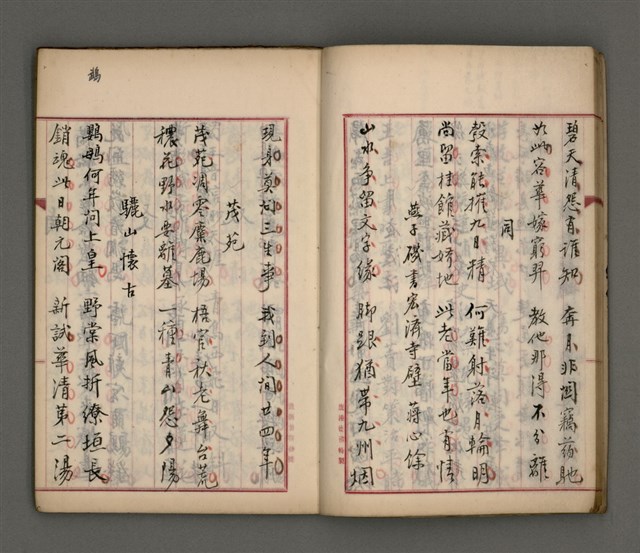 碧天清怨有誰知　奔月非因竊藥馳
於此容華嫁窮羿　教他那得不分離
同
彀索能摧九日精　何難射落月輪明
尚留挂館藏嬌地　此老當年也有情
燕子磯書宏濟寺壁　蔣心餘
山水爭留文字緣　腳跟猶帶九州烟
現身莫問三生事　我到人間廿四年
茂苑
茂苑凋零麋鹿場　梧宮秋老舞臺荒
穠花野水要離墓　一種青山怨夕陽
驪山懷古
鸚鵡何年問上皇　野棠風折繚垣長
銷魂此日朝元閣　新試華清第二湯
鵡